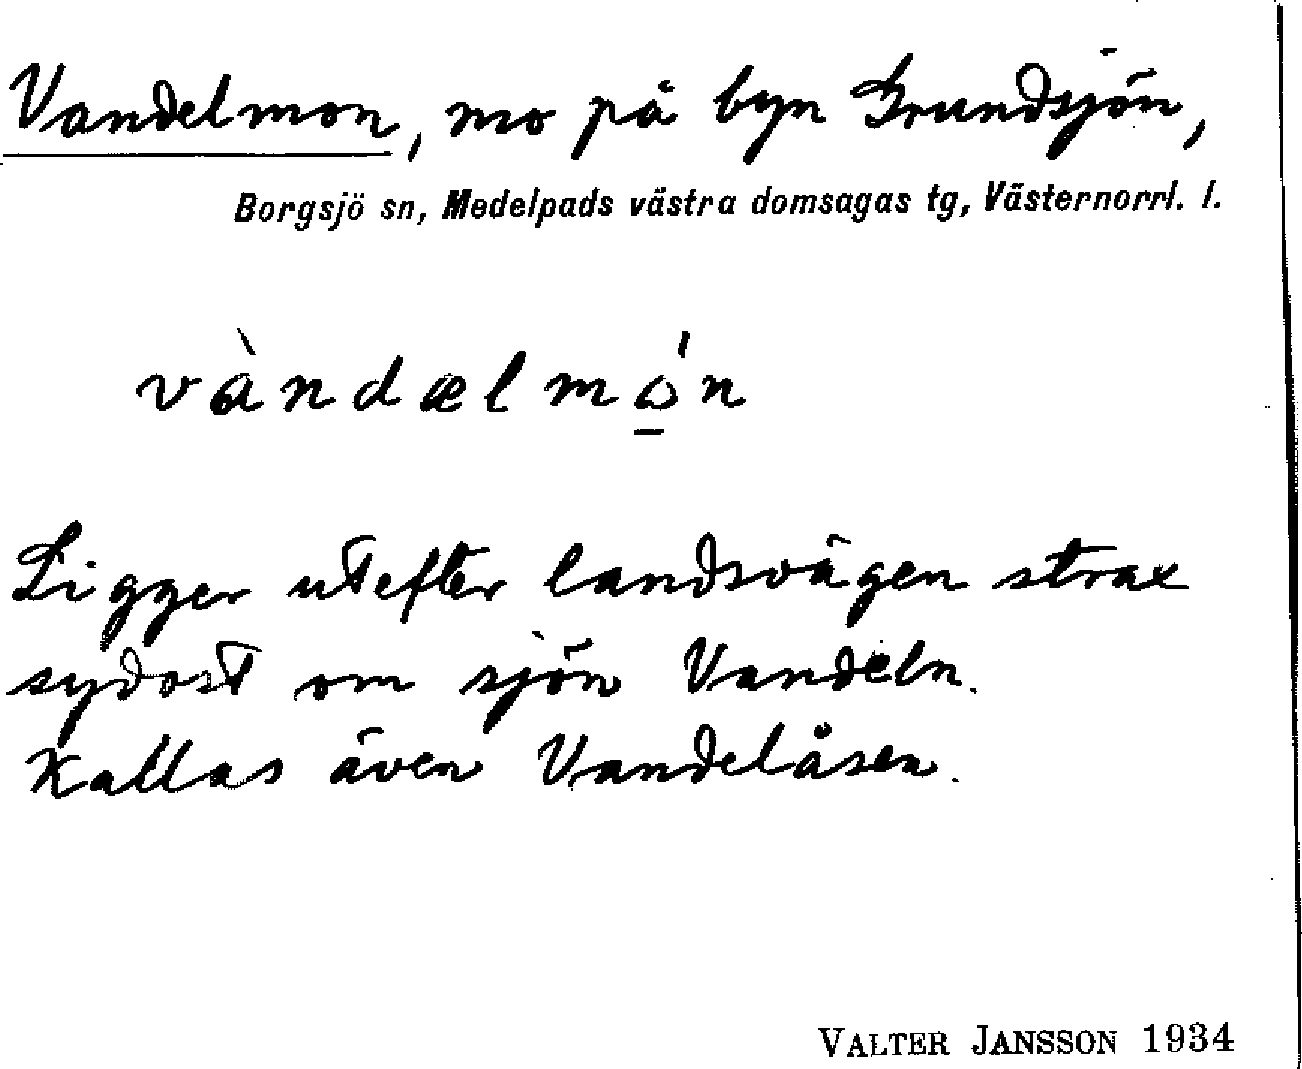 Vandelmon, mo på byn Grundsjön,
Borgsjö sn, Medelpads västra domsagas tg, Västernorrl. l.
vàndælmó̱n
Ligger utefter landsvägen strax
sydost om sjön Vandeln.
Kallas även Vandelåsen.
VALTER JANSSON 1934